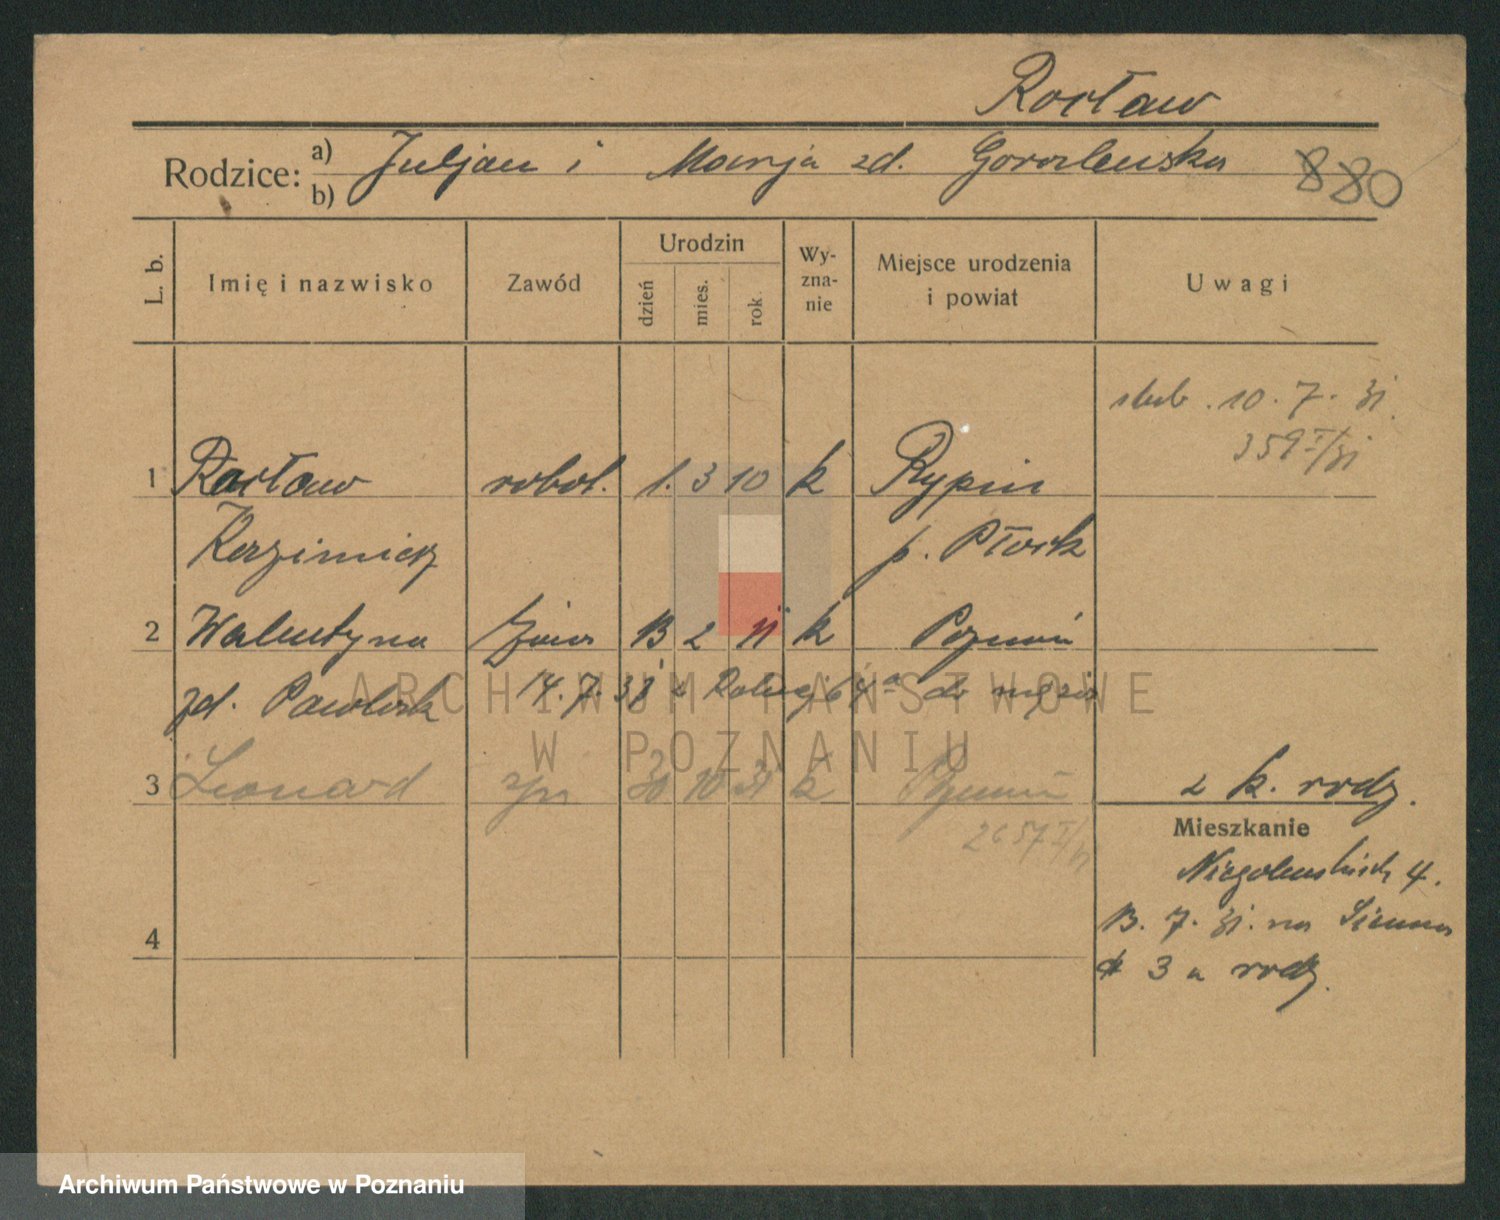 Rocław
Rodzice: a) Juljan i Marja zd. Goralewska 880
b)
L. b. Imię i nazwisko Zawód Urodzin dzień mies. rok Wy-zna-nie Miejsce urodzenia i powiat Uwagi
ślub . 10. 7. 31.
359 I/31
1 Rocław robot. 1. 3 10 k Rypin
Kazimierz p. Płock
2 Walentyna żona 13 2 11 k Poznań
zd. Pawlak 14. 7. 33 z Rolnej 64a do męża
3 Leonard syn 30 10 31 k Poznań
z k. rodz.
2657 I/31
Mieszkanie
Niegolewskich 4.
13. 7. 31. na Sienna
3 u rodz.
4
ARCHIWUM PAŃSTWOWE
W POZNANIU
Archiwum Państwowe w Poznaniu